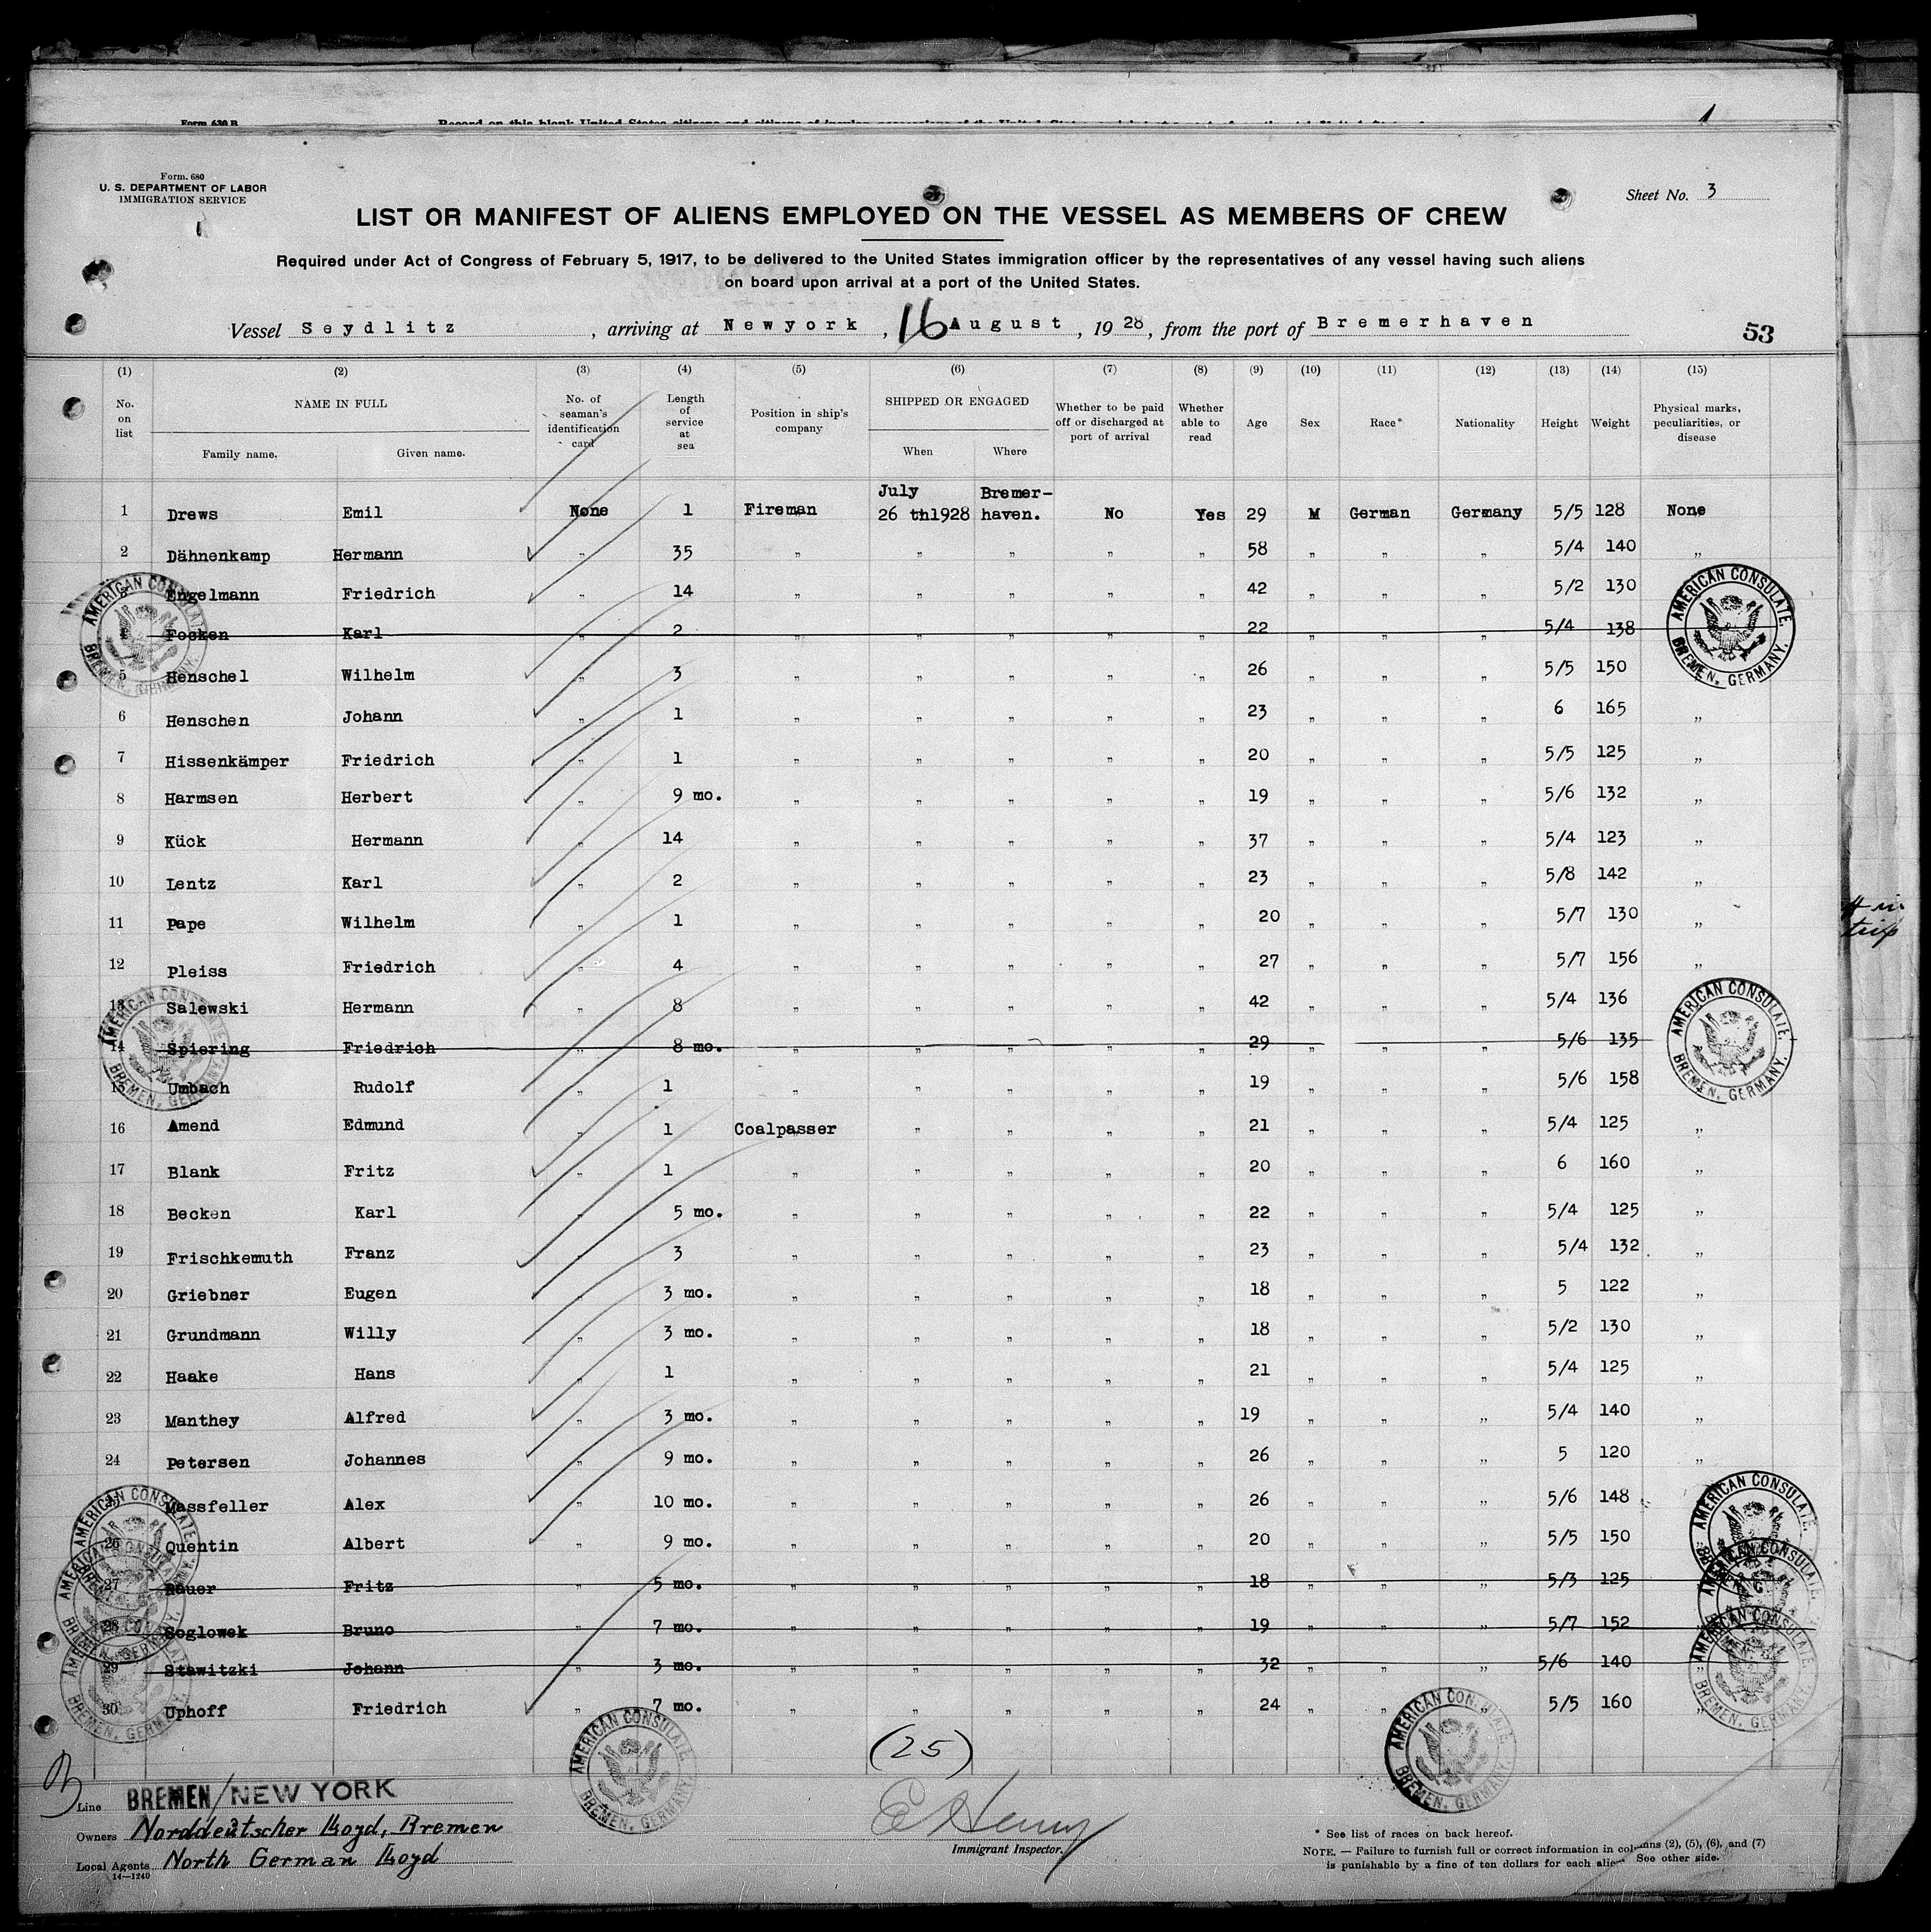 1
Form 630 B
Form. 680
U. S. DEPARTMENT OF LABOR
IMMIGRATION SERVICE
Sheet No. 3
LIST OR MANIFEST OF ALIENS EMPLOYED ON THE VESSEL AS MEMBERS OF CREW
Required under Act of Congress of February 5, 1917, to be delivered to the United States immigration officer by the representatives of any vessel having such aliens
on board upon arrival at a port of the United States.
Vessel Seydlitz, arriving at Newyork, 16 August, 1928, from the port of Bremerhaven
53
(1) (2) (3) (4) (5) (6) (7) (8) (9) (10) (11) (12) (13) (14) (15)
No. on list NAME IN FULL Family name. Given name. No. of seaman's identification card Length of service at sea Position in ship's company SHIPPED OR ENGAGED When Where Whether to be paid off or discharged at port of arrival Whether able to read Age Sex Race* Nationality Height Weight Physical marks, peculiarities, or disease
1 Drews Emil None 1 Fireman July 26 th1928 Bremer-haven. No Yes 29 M German Germany 5/5 128 None
2 Dähnenkamp Hermann „ 35 „ „ „ „ „ 58 „ „ „ 5/4 140 „
Engelmann Friedrich „ 14 „ „ „ „ „ 42 „ „ „ 5/2 130
Focken Karl „ 2 „ „ „ „ „ 22 „ „ „ 5/4 138
5 Henschel Wilhelm „ 3 „ „ „ „ „ 26 „ „ „ 5/5 150
6 Henschen Johann „ 1 „ „ „ „ „ 23 „ „ „ 6 165 „
7 Hissenkämper Friedrich „ 1 „ „ „ „ „ 20 „ „ „ 5/5 125 „
8 Harmsen Herbert „ 9 mo. „ „ „ „ „ 19 „ „ „ 5/6 132 „
9 Kück Hermann „ 14 „ „ „ „ „ 37 „ „ „ 5/4 123 „
10 Lentz Karl „ 2 „ „ „ „ „ 23 „ „ „ 5/8 142 „
11 Pape Wilhelm „ 1 „ „ „ „ „ 20 „ „ „ 5/7 130 „
12 Pleiss Friedrich „ 4 „ „ „ „ „ 27 „ „ „ 5/7 156 „
13 Salewski Hermann „ 8 „ „ „ „ „ 42 „ „ „ 5/4 136
14 Spiering Friedrich „ 8 mo. „ „ „ „ „ 29 „ „ „ 5/6 135
15 Umbach Rudolf „ 1 „ „ „ „ „ 19 „ „ „ 5/6 158
16 Amend Edmund „ 1 Coalpasser „ „ „ „ 21 „ „ „ 5/4 125 „
17 Blank Fritz „ 1 „ „ „ „ „ 20 „ „ „ 6 160 „
18 Becken Karl „ 5 mo. „ „ „ „ „ 22 „ „ „ 5/4 125 „
19 Frischkemuth Franz „ 3 „ „ „ „ „ 23 „ „ „ 5/4 132 „
20 Griebner Eugen „ 3 mo. „ „ „ „ „ 18 „ „ „ 5 122 „
21 Grundmann Willy „ 3 mo. „ „ „ „ „ 18 „ „ „ 5/2 130 „
22 Haake Hans „ 1 „ „ „ „ „ 21 „ „ „ 5/4 125 „
23 Manthey Alfred „ 3 mo. „ „ „ „ „ 19 „ „ „ 5/4 140 „
24 Petersen Johannes „ 9 mo. „ „ „ „ „ 26 „ „ „ 5 120 „
25 Massfeller Alex „ 10 mo. „ „ „ „ „ 26 „ „ „ 5/6 148
26 Quentin Albert „ 9 mo. „ „ „ „ „ 20 „ „ „ 5/5 150
27 Rauer Fritz „ 5 mo. „ „ „ „ „ 18 „ „ „ 5/3 125
28 Soglowek Bruno „ 7 mo. „ „ „ „ „ 19 „ „ „ 5/7 152
29 Stawitzki Johann „ 3 mo. „ „ „ „ „ 32 „ „ „ 5/6 140
30 Uphoff Friedrich „ 7 mo. „ „ „ „ „ 24 „ „ „ 5/5 160 „
AMERICAN CONSULATE. BREMEN, GERMANY.
AMERICAN CONSULATE. BREMEN, GERMANY.
AMERICAN CONSULATE. BREMEN, GERMANY.
AMERICAN CONSULATE. BREMEN, GERMANY.
AMERICAN CONSULATE. BREMEN, GERMANY.
AMERICAN CONSULATE. BREMEN, GERMANY.
(25)
Line BREMEN/NEW YORK
Owners Norddeutscher Lloyd, Bremen
Local Agents North German Lloyd
14—1240
E Henry
Immigrant Inspector.
* See list of races on back hereof.
NOTE. — Failure to furnish full or correct information in columns (2), (5), (6), and (7)
is punishable by a fine of ten dollars for each alien. See other side.
trip